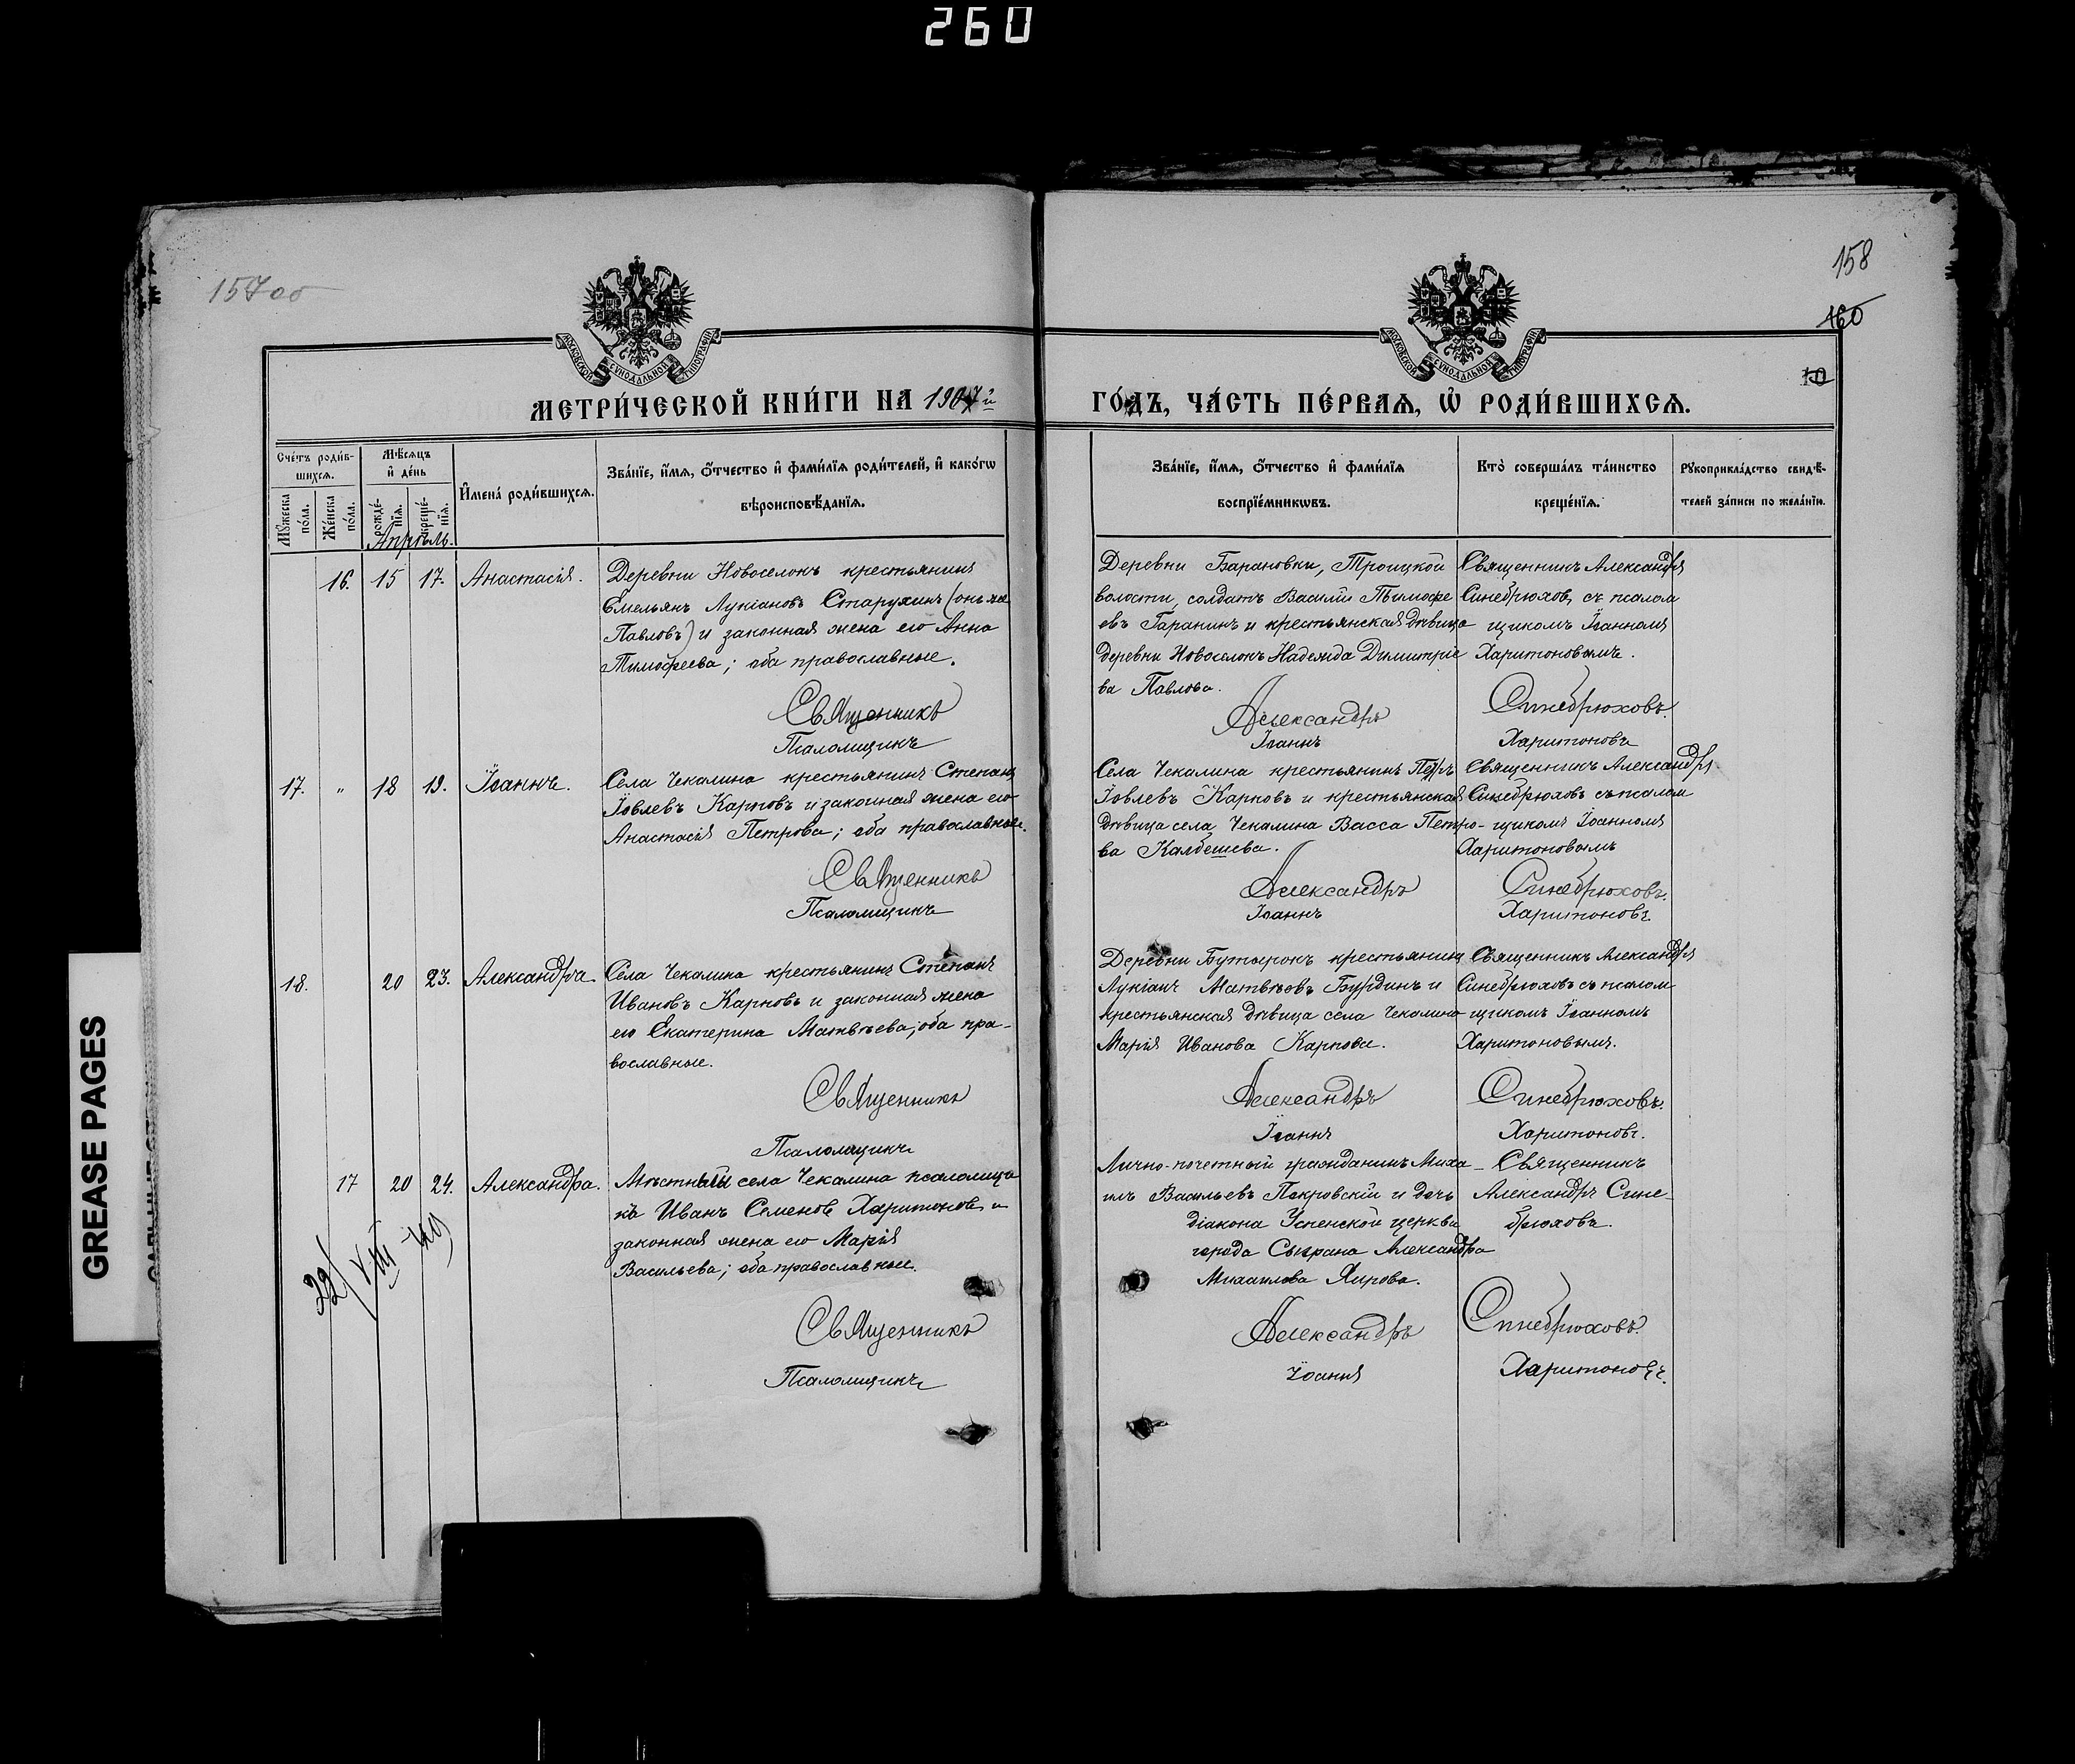 260
157 об
158
160
10
МОСКОВСКОЙ СѴНОДАЛЬНОЙ ТИПОГРАФІИ
МОСКОВСКОЙ СѴНОДАЛЬНОЙ ТИПОГРАФІИ
МЕТРИ́ЧЕСКОЙ КНИ́ГИ НА 1907й
ГО́ДЪ, ЧА́СТЬ ПЕ́РВАѦ, Ѡ҆ РОДИ́ВШИХСѦ.
Сче́тъ роди́в-
шихсѧ.
Мꙋ́жеска по́ла.
Же́нска по́ла.
Мѣ́сѧцъ и҆ де́нь
рожде́-
нїѧ.
креще́-
нїѧ.
И҆мена́ роди́вшихсѧ.
Зва́нїе, и҆́мѧ, ѻ҆́тчество и҆ фами́лїѧ роди́телей, и҆ како́гѡ
вѣроисповѣ́данїѧ.
Зва́нїе, и҆́мѧ, ѻ҆́тчество и҆ фами́лїѧ
воспрїе́мникѡвъ.
Кто̀ соверша́лъ та́инство
креще́нїѧ.
Рꙋкоприкла́дство свидѣ́-
телей за́писи по жела́нїю.
Апрѣль.
16. 15 17. Анастасія.
Деревни Новоселокъ крестьянинъ
Емельянъ Лукіановъ Старухинъ (онъ же
Павловъ) и законная жена его Анна
Тимофеева; оба православные.
Священникъ
Псаломщикъ
Деревни Барановки, Троицкой
волости, солдатъ Василій Тимофе
евъ Гаранинъ и крестьянская дѣвица
деревни Новоселокъ Надежда Димитріе
ва Павлова.
Александръ
Іоаннъ
Священникъ Александръ
Синебрюховъ, съ псалом
щикомъ Іоанномъ
Харитоновымъ.
Синебрюховъ.
Харитоновъ
17. „ 18 19. Іоаннъ.
Села Чекалина крестьянинъ Степанъ
Іовлевъ Карповъ и законная жена его
Анастасія Петрова; оба православные.
Священникъ
Псаломщикъ
Села Чекалина крестьянинъ Петръ
Іовлевъ Карповъ и крестьянская
дѣвица села Чекалина Васса Петро-
ва Калбешева.
Александръ
Іоаннъ
Священникъ Александръ
Синебрюховъ съ псалом
щикомъ Іоанномъ
Харитоновымъ
Синебрюховъ.
Харитоновъ.
18. 20 23. Александръ.
Села Чекалина крестьянинъ Степанъ
Ивановъ Карповъ и законная жена
его Екатерина Матвѣева; оба пра-
вославные.
Священникъ
Псаломщикъ
Деревни Бутырокъ крестьянинъ
Лукіанъ Матвѣевъ Бурдинъ и
крестьянская дѣвица села Чекалина
Марія Иванова Карпова.
Александръ
Іоаннъ
Священникъ Александръ
Синебрюховъ съ псалом
щикомъ Іоанномъ
Харитоновымъ.
Синебрюховъ.
Харитоновъ.
17 20 24. Александра.
Мѣстный села Чекалина псаломщи
къ Иванъ Семеновъ Харитоновъ и
законная жена его Марія
Васильева; оба православные.
Священникъ
Псаломщикъ
Лично-почетный гражданинъ Миха-
илъ Васильевъ Покровскій и дочь
діакона Успенской церкви
города Сызрана Александра
Михаилова Хирова.
Александръ
Іоаннъ
Священникъ
Александръ Сине-
брюховъ.
Синебрюховъ.
Харитоновъ.
22/VIII
GREASE PAGES